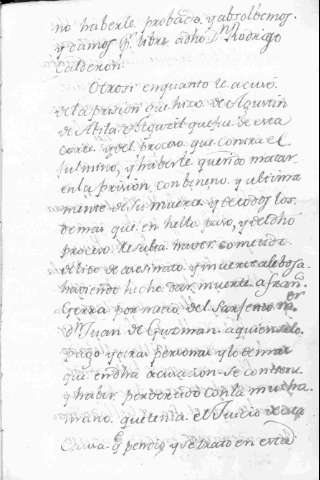 no haberle probado, y absolbemos,
y damos Pr. libre adho Dn. Rodrigo
Calderon.
Otrosi enquanto le acusó
dela prision que hizo de Agustin
de Abila Alguacil que fue de esta
corte, y del proceso que contra el
fulmino, y haberle querido matar
en la prision, con beneno, y ultima
mente de su muerte, y de todos los
demas que en hello paso, y del dho
proceso resulta haver cometido
delito de asesinato, y muerte alebosa
haviendo hecho dar muerte a Fran.co
por mano del Sargento
dn. Juan de Guzman, aquien lo
pago y otras personas, y lo demas
que en dha acusacion se contiene
y haber perdon con la
mano, que tenia el Juicio de esta
Causa q pendio, y se trato en esta